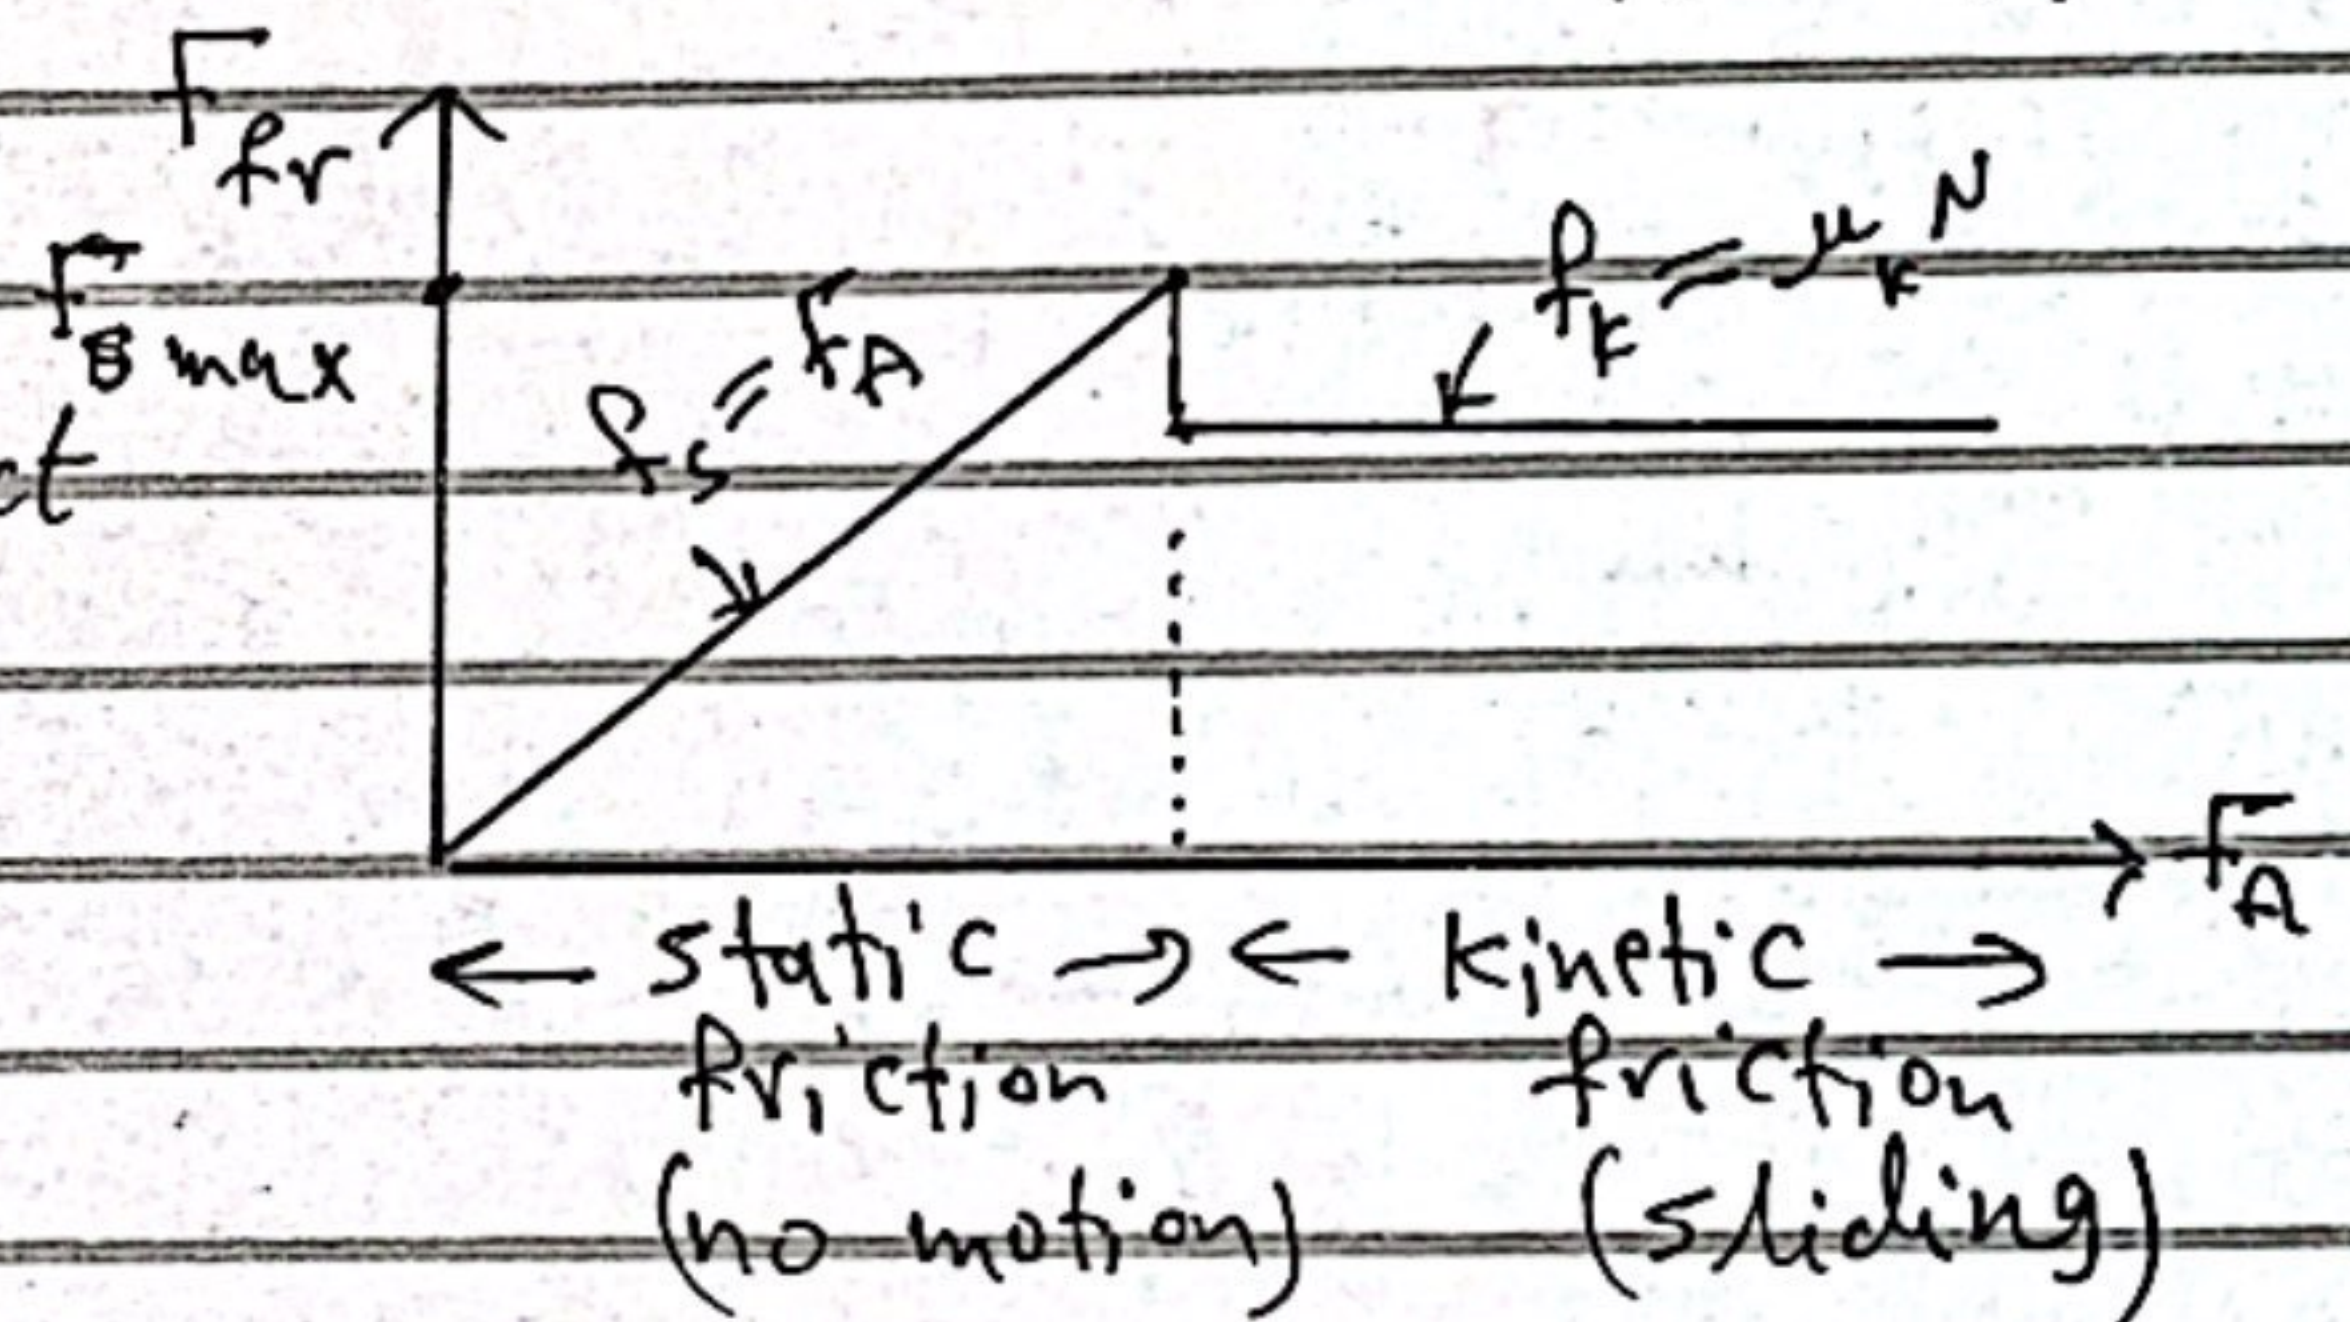 F fr
F s max
ct
f s = F A
f k = μ k N
F A
← static → ← kinetic →
friction friction
(no motion) (sliding)